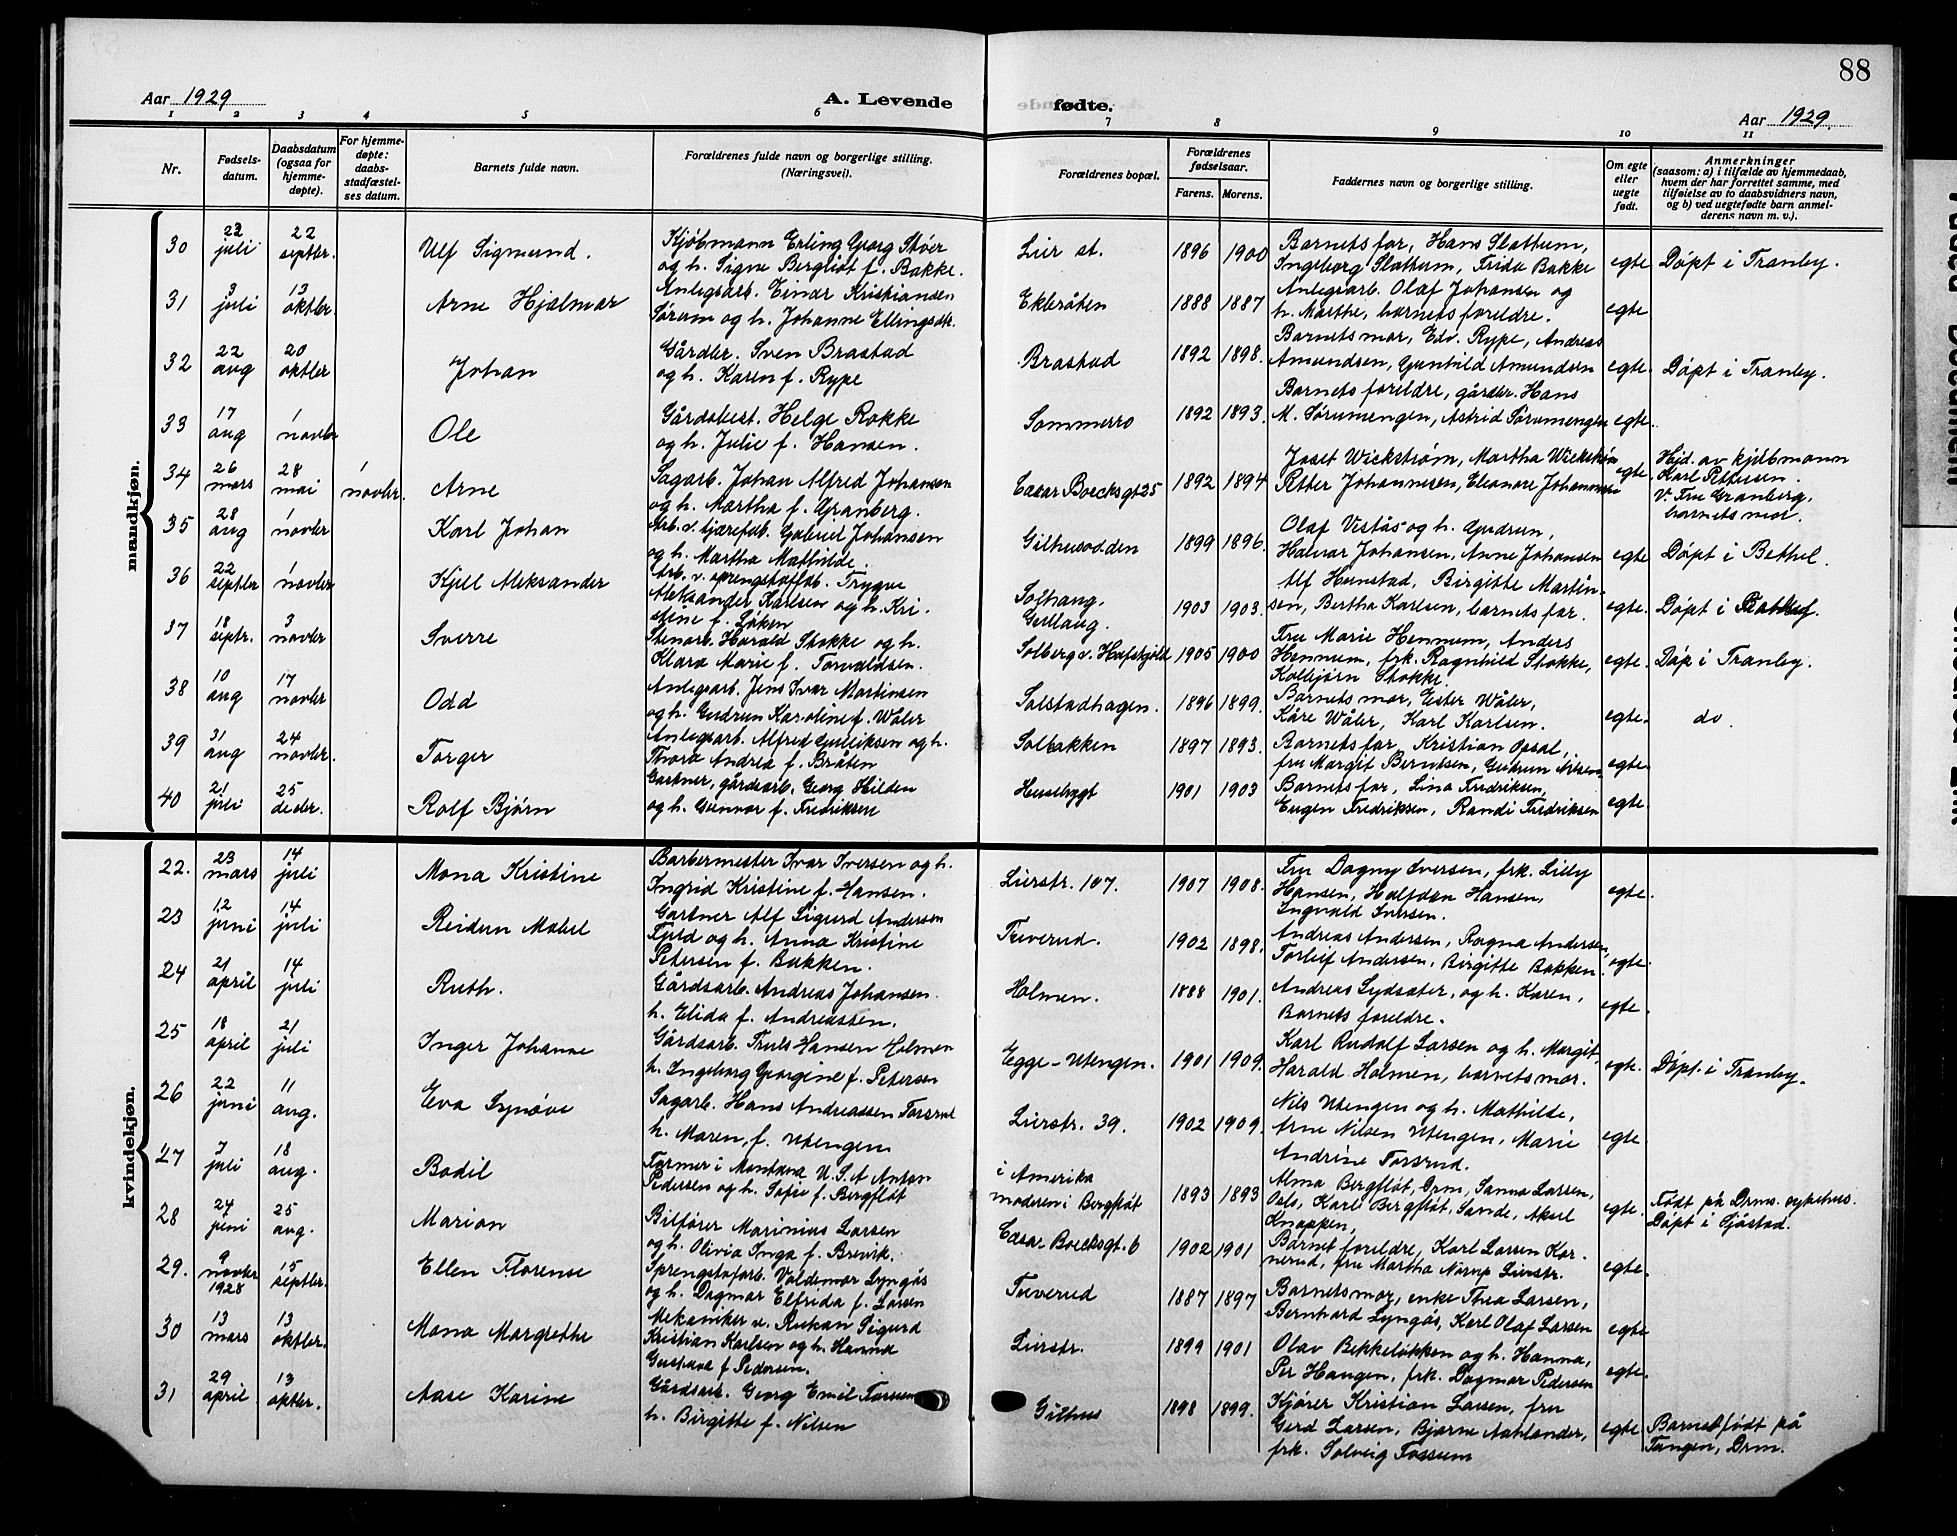 88
Aar 1929
A. Levende fødte.
Aar 1929.
1 2 3 4 5 6 7 8 9 10 11
Nr.
Fødselsdatum.
Daabsdatum (ogsaa for hjemmedøpte).
For hjemmedøpte: daabsstadfæstelses datum.
Barnets fulde navn.
Forældrenes fulde navn og borgerlige stilling. (Næringsvei).
Forældrenes bopæl.
Forældrenes fødselsaar.
Farens. Morens.
Faddernes navn og borgerlige stilling.
Om egte eller uegte født.
Anmerkninger (saasom: a) i tilfælde av hjemmedaab, hvem der har forrettet samme, med tilføielse av to daabsvidners navn, og b) ved uegtefødte barn anmelderens navn m. v.).
mandkjøn.
30 22 juli 22 septbr. Ulf Sigmund. Kjøbmann Erling Georg Støer og h. Signe Bergliot f. Bakke. Lier st. 1896 1900 Barnets far, Hans Slattum, Ingeborg Slattum, Frida Bakke egte Døpt i Tranby.
31 3 juli 13 oktbr. Arne Hjalmar Anlegsarb. Einar Kristiansen Sørum og h. Johanne Ellingsdt. Ekbråten 1888 1887 Anlegsarb. Olaf Johansen og h. Marthe, barnets foreldre. egte
32 22 aug 20 oktbr Johan Gårdbr. Sven Brastad og h. Karen f. Rype Brastad 1892 1898. Barnets mor, Edv. Rype, Andreas Amundsen, Gunhild Amundsen egte. Døpt i Tranby.
33 17 aug 1 novbr Ole Gårdsbest. Helge Rokke og h. Julie f. Hansen. Sommerro 1892 1893. Barnets foreldre, gårdbr. Hans M. Sørumengen, Astrid Sørumengen egte.
34 26 mars 28 mai 1 novbr. Arne Sagarb. Johan Alfred Johansen og h. Martha f. Granberg. Cæsar Boecksgt 25 1892 1894 Josef Wickstrøm, Martha Wickstrøm Petter Johannesen, Eleanore Johannesen egte Hjd. av kjøbmann Karl Pettersen. V. Fru Granberg, barnets mor.
35 28 aug 1 novbr Karl Johan Arb. v. kjærefab. Gabriel Johansen og h. Martha Mathilde. Gilhusodden 1899 1896. Olaf Viståsog h. Gudrun, Halvar Johansen, Anne Johansen egte Døpt i Bethel.
36 22 septbr 1 novbr Kjell Aleksander Arb. v. sprengstoffab. Trygve Aleksander Karlsen og h. Kristine f. Løken Solhaug, Gullaug. 1903 1903. Alf Hunstad, Birgitte Martinsen, Bertha Karlsen, barnets far. egte. Døpt i
37 18 septr. 3 novbr Sverre Stenarb. Harald Stokke og h. Klara Marie f. Torvaldsen. Solberg v. Hafskjold 1905 1900 Fru Marie Hennum, Anders Hennum, frk. Ragnhild Stokke, Kolbjørn Stokke. egte. Døp i Tranby.
38 10 aug 17 novbr Odd Anlegsarb. Jens Ivar Martinsen og h. Gudrun Karoline f. Wåler Solstadhagen. 1896 1899. Barnets mor, Ester Wåler, Kåre Wåler, Karl Karlsen. egte. do.
39 31 aug 24 novbr. Torger Anlegsarb. Alfred Gulliksen og h. Thora Andrea f. Bråten Solbakken 1897 1893. Barnets far, Kristian Opsal, fru Margit Berntsen, Gudrun Nilsen egte.
40 21 juli 25 desbr. Rolf Bjørn Gartner, gårdsarb. Georg Hilden og h. Gunvor f. Fredriksen Husebygt 1901 1903 Barnets far, Lina Fredriksen, Eugen Fredriksen, Randi Fredriksen egte
kvindekjøn.
22. 23 mars 14 juli Mona Kristine Barbermester Ivar Iversen og h. Ingrid Kristine f. Hansen. Lierstr. 107. 1907 1908. Fru Dagny Iversen, frk. Lilly Hansen, Halfdan Hansen, Ingvald Iversen. egte.
23 12 juni 14 juli Reidun Mabel Gartner Alf Sigurd Andersen Fjeld og h. Anna Kristine Petersen f. Bakken. Tuverud. 1902 1898. Andreas Andersen, Ragna Andersen, Torleif Andersen, Birgitte Bakken. egte.
24 21 april 14 juli Ruth. Gårdsarb. Andreas Johansen. h. Elida f. Andreassen. Holmen. 1888 1901. Andreas Lydsæter, og h. Karen, Barnets foreldre. egte.
25 18 april 21 juli Inger Johanne Gårdsarb. Truls Hansen Holmen h. Ingeborg Georgine f. Petersen Egge-Utengen. 1901 1909. Karl Rudolf Larsen og h. Margit, Harald Holmen, barnets mor. egte. Døpt i Tranby.
26 22 juni 11 aug. Eva Synøve Sagarb. Hans Andreassen Torsrud h. Maren, f. Utengen Lierstr. 39. 1902 1909. Nils Utengen og h. Mathilde, Arne Nilsen Utengen, Marie Andrine Torsrud. egte
27 3 juli 18 aug. Bodil Farmer i Montana U.S.A Anton Pedersen og h. Sofie f. Bergfløt i Amerika moderen i Bergfløt 1893 1893 Alma Bergfløt, Drm, Sanna Larsen, Oslo, Karl Bergfløt, Sande, Aksel Knappen, egte. Født på Drms. sykehus. Døpt i Sjåstad.
28 24 juni 25 aug. Marion Bilfører Marinius Larsen og h. Olivia Inga f. Brevik. Cæsar Boecksgt. 6 1902 1901 Barnet foreldre, Karl Larsen Kornerud, fru Martha Nørup Lierstr. egte.
29. 9 novbr 1928 15 septbr. Ellen Florense Sprengstofarb. Valdemar Lyngås og h. Dagmar Elfrida f. Larsen Tuverud 1887 1897 Barnets mor, enke Thea Larsen, Bernhard Lyngås, Karl Olaf Larsen egte
30 13 mars 13 oktbr. Mona Margrethe Mekaniker v. Rukan Sigurd Kristian Karlsen og h. Hanna Gustava f Pedersen. Lierstr. 1899 1901 Olav Bekkeløkken og h. Hanna, Per Haugen, frk. Dagmar Pedersen egte.
31 29 april 13 oktbr. Aase Karine Gårdsarb. Georg Emil Fossum h. Birgitte f. Nilsen Gilhus 1898 1899. Kjører Kristian Larsen, fru Gerd Larsen, Bjarne Aahlander, frk. Solveig Fossum egte Barnet født på Tangen, Drm.